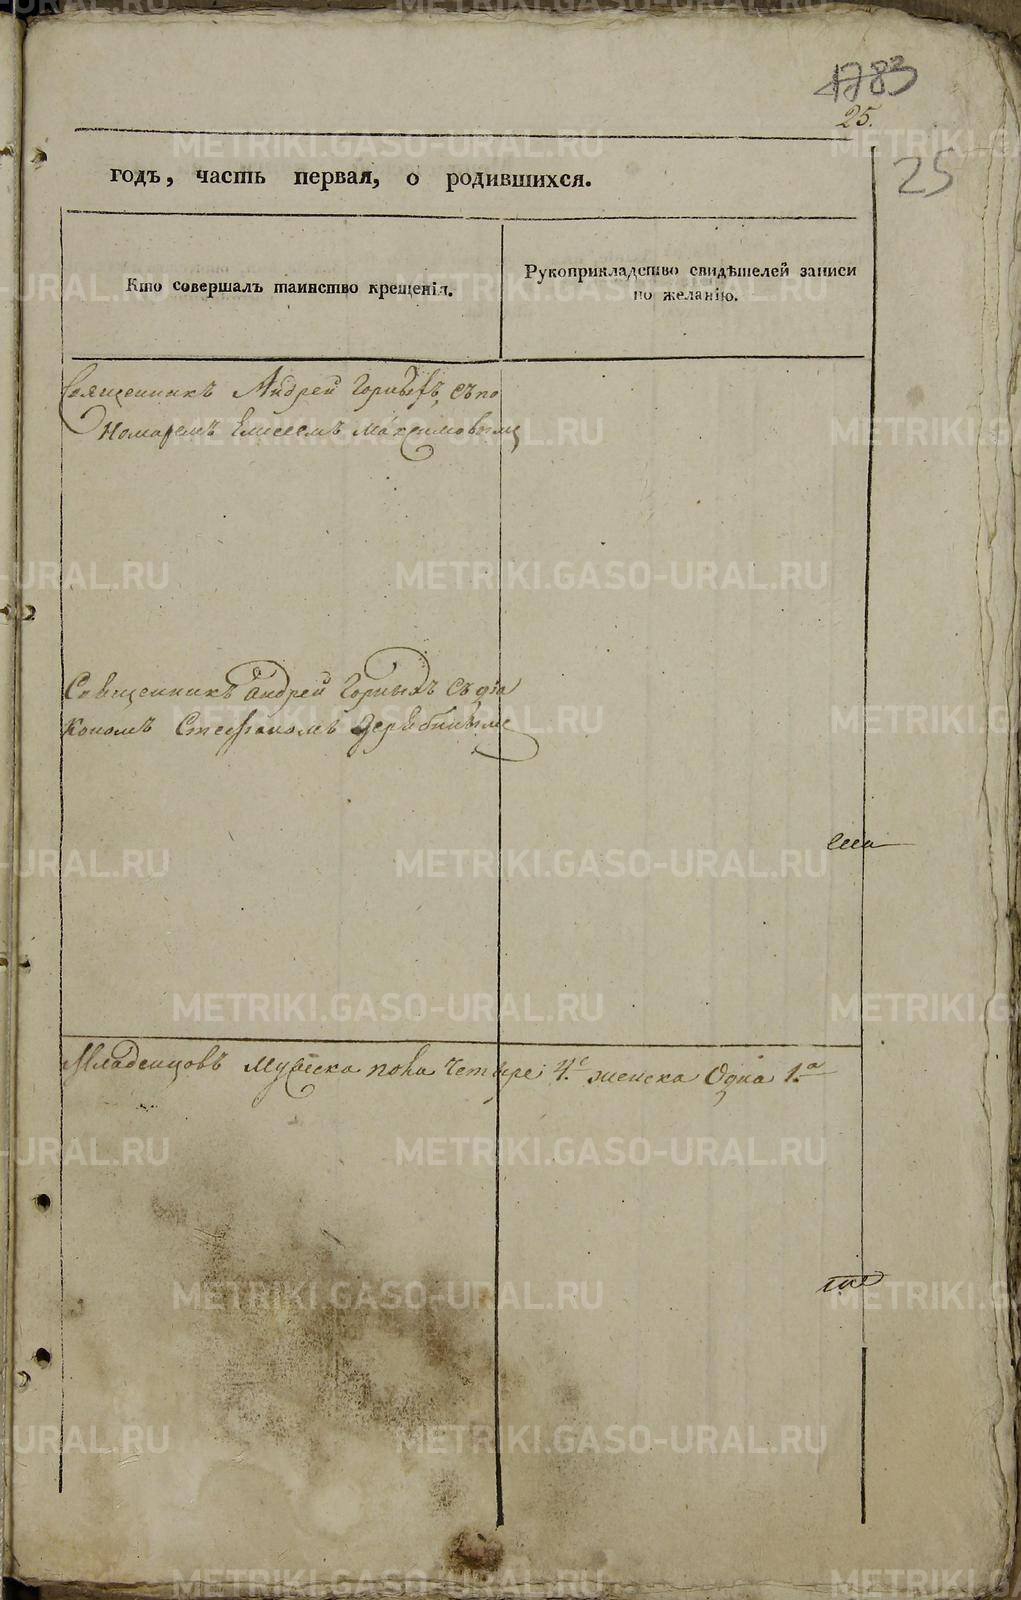 1783
25.
25
годъ, часть первая, о родившихся.
Кто совершалъ таинство крещенія.
Рукоприкладство свидѣтелей записи
по желанію.
Священникъ Андрей Горныхъ, съ по
номаремъ Елисеемъ Максимовымъ
Священникъ Андрей Горныхъ съ діа
кономъ Стефаномъ Дерябинымъ
Младенцовъ мужеска пола четыре 4.е женска Одна 1.а
METRIKI.GASO-URAL.RU